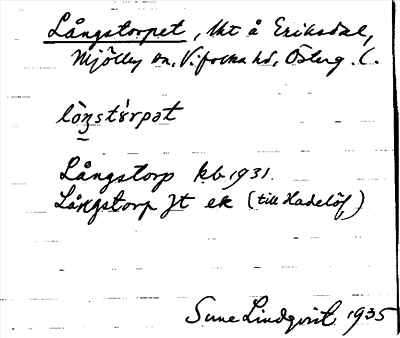 Långstorpet, lht å Eriksdal,
Mjölby sn, Vifolka hd, Österg. l.
lòŋstꞷ̀rpət
Långstorp kb 1931.
Långstorp Jt ek (till Hadelöf)
Sune Lindqvist 1935